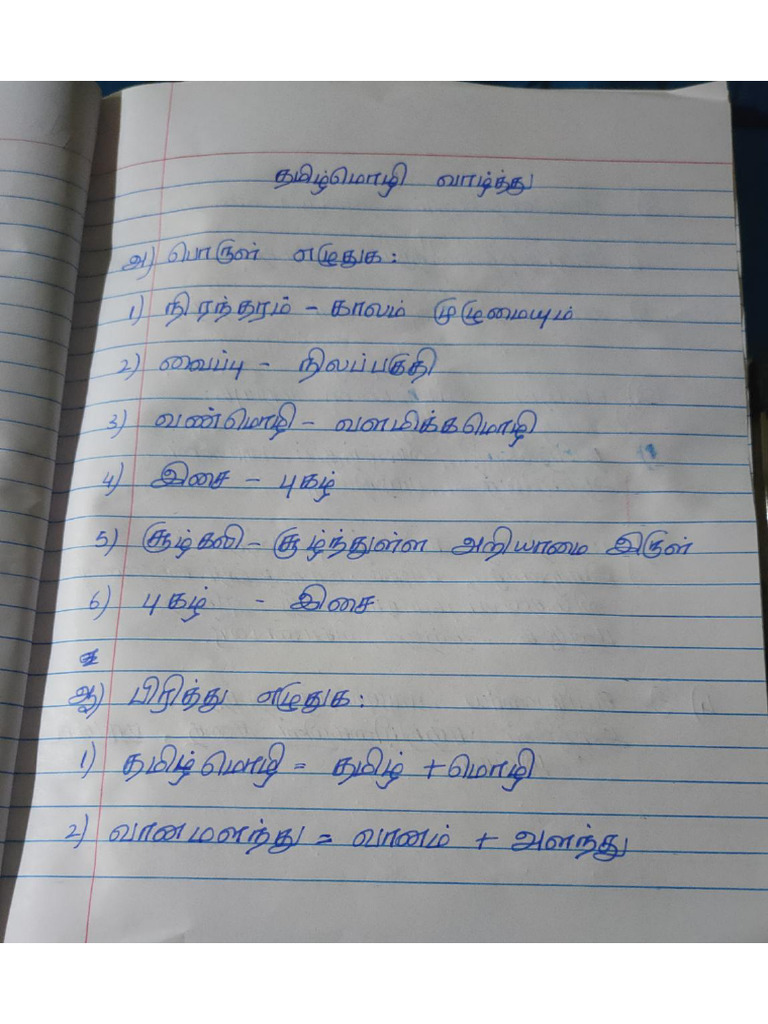 தமிழ்மொழி வாழ்த்து
அ) பொருள் எழுதுக :
1) நிரந்தரம் - காலம் முழுமையும்
2) வைப்பு - நிலப்பகுதி
3) வண்மொழி - வளமிக்கமொழி
4) இசை - புகழ்
5) சூழ்கலி - சூழ்ந்துள்ள அறியாமை இருள்
6) புகழ் - இசை
ஆ) பிரித்து எழுதுக :
1) தமிழ்மொழி = தமிழ் + மொழி
2) வானமளந்து = வானம் + அளந்து